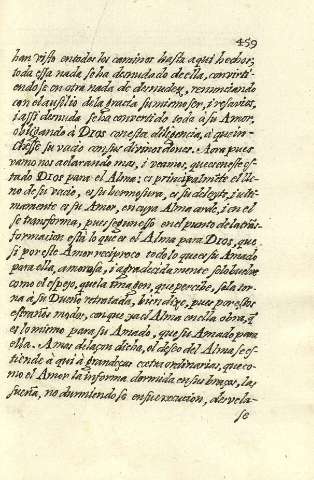 459
han visto en todos los caminos hasta aqui hechos,
toda essa nada se ha desnudado de ella, convirti-
endose en otra nada de desnudez, renunciando
con el auxilio de la gracia su mismo ser, i resavios,
i assi desnuda se ha convertido toda à su Amor,
obligando à DIOS con esta diligencia, à que in-
chesse su vacio con sus divinos dones. Aora pues
vamonos aclarando mas, i veamos, que es en este es-
tado DIOS para el Alma: es principalmẽte el lle-
no de su vacio, es su hermosura, es su deleyte, i ulti-
mamente es su Amor, en cuya Alma arde, i en el
se transforma, pues segun esso en el punto de la trãs-
formacion esta lo que es el Alma para DIOS, que
si por este Amor reciproco todo lo que es su Amado
para ella, amorosa, i agradezidamente solo buelve
como el espejo, que la imagen, que percibe, sola tor-
na à su Dueño retratada, bien dixe, pues por essos
estraños modos, con que yaze el Alma en ella obra, q̃
es lo mismo para su Amado, que su Amado para
ella. Amas de la çon dicha, el deseo del Alma se es-
tiende à qui à grandeças extraordinarias, que co-
mo el Amor la informa dormida en sus braços, las
sueña, no durmiendose en su execucion, desvela-
se